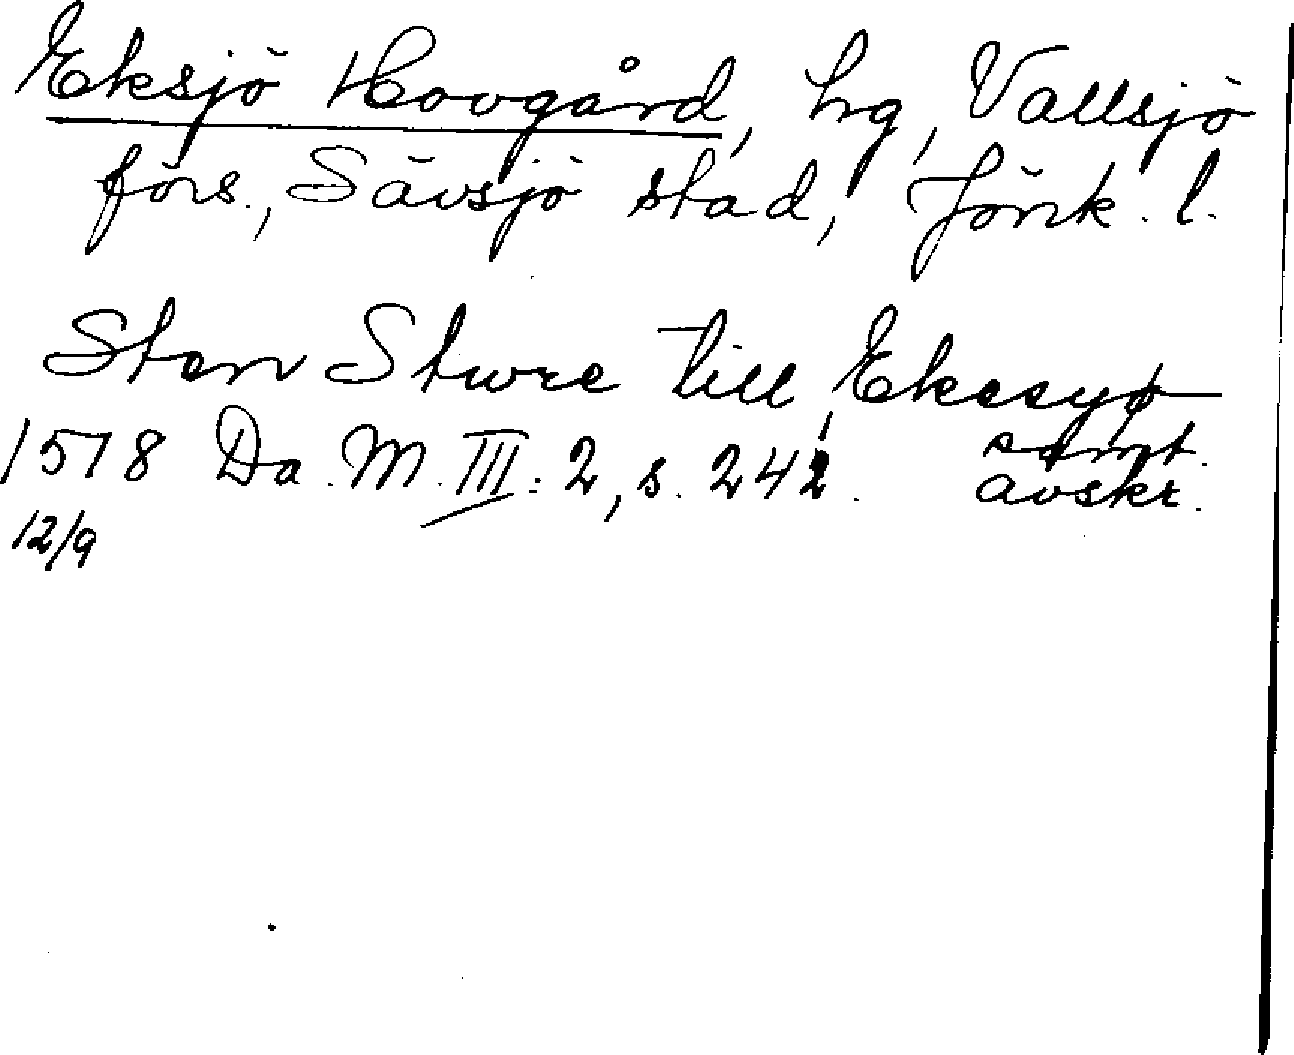 Eksjö Hovgård, hg, Vallsjö
förs., Sävsjö stad, Jönk. l.
Sten Sture till Ekesyø
1518 Da. M. III: 2, s. 242. samt.
avskr.
12/9